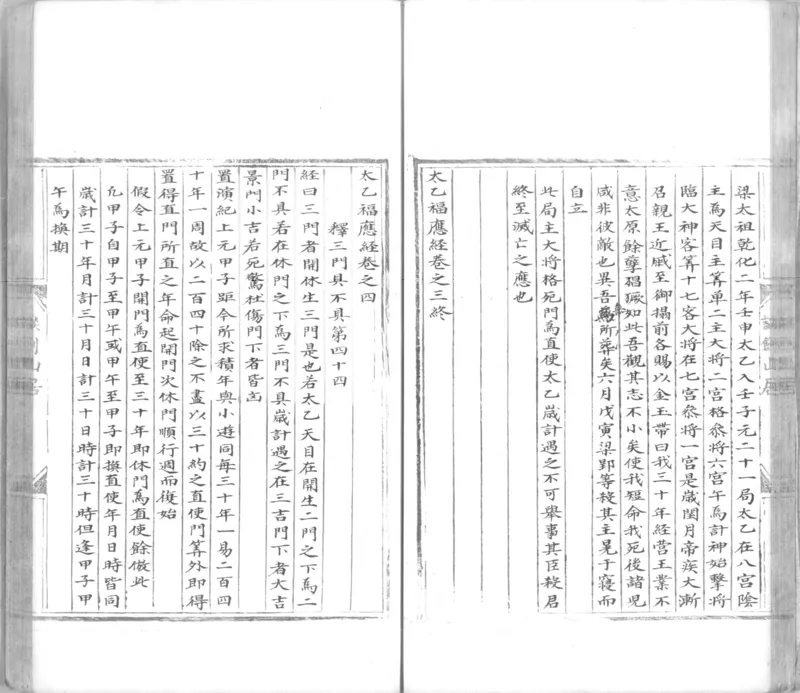 梁太祖乾化二年壬申太乙入壬子元二十一局太乙在八宮陰
主為天目主筭單二主大將二宮格叅將六宮午為計神始擊將
臨大神客筭十七客大將在七宮叅將一宮是歲閏月帝疾大漸
召親王近戚至御搨前各賜以金玉帶曰我三十年經营王業不
意太原餘孽猖獗如此吾觀其志不小矣使我短命我死後諸兒
咸非彼敵也異吾無所葬矣六月戊寅梁郢等殺其主晃于寢而
自立
此局主大將格死門為直使太乙歲計遇之不可舉事其臣殺君
終至滅亡之應也
太乙福應経卷之三終
太乙福應経卷之四
釋三門具不具第四十四
經曰三門者開休生三門是也若太乙天目在開生二門之下為二
門不具若在休門之下為三門不具歲計遇之在三吉門下者大吉
景門小吉若死驚杜傷門下者皆凶
置演紀上元甲子距今所求積年與小遊同每三十年一易二百四
十年一周故以二百四十除之不盡以三十約之直使門筭外即得
置得直門所直之年命起開門次休門順行週而復始
假令上元甲子開門為直使至三十年即休門為直使餘倣此
凢甲子自甲子至甲午或甲午至甲子即換直使年月日時皆同
歲計三十年月計三十月日計三十日時計三十時但逢甲子甲
午為換期